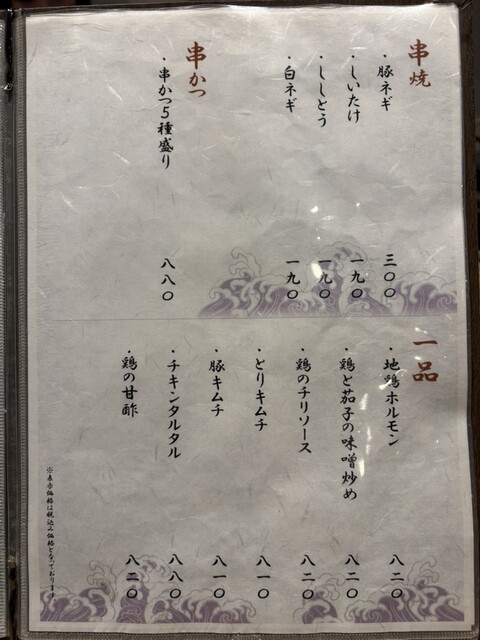 串焼
・豚ネギ 三〇〇
・しいたけ 一九〇
・ししとう 一九〇
・白ネギ 一九〇
串かつ
・串かつ5種盛り 八八〇
一品
・地鶏ホルモン 八二〇
・鶏と茄子の味噌炒め 八二〇
・鶏のチリソース 八二〇
・とりキムチ 八一〇
・豚キムチ 八一〇
・チキンタルタル 八八〇
・鶏の甘酢 八二〇
※表示価格は税込み価格となっております